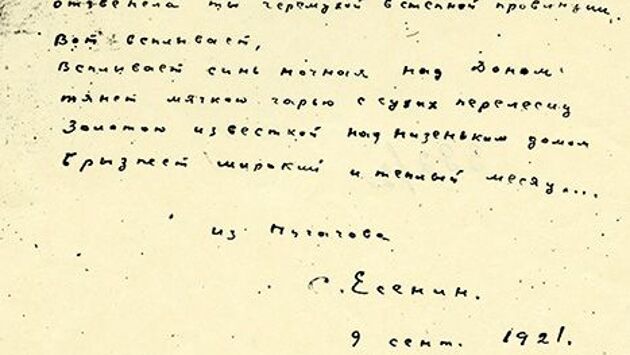 отзвенела ты черемухой в степной провинции.
Вот всплывает,
Всплывает синь ночная над Доном
тянет мягкою гарью с сухих перелесиц
Золотою известкой над низеньким домом
Брызжет широкий и теплый месяц...
из Пугачова
С. Есенин.
9 сент. 1921.